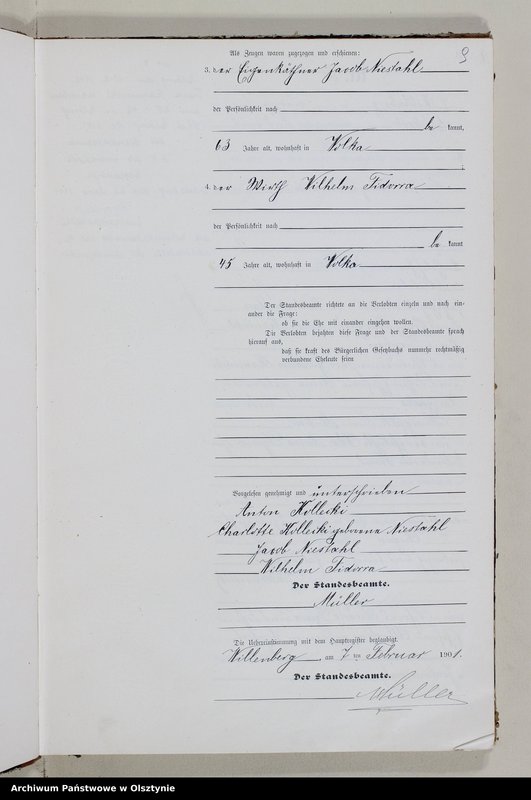 Als Zeugen waren zugezogen und erschienen:
3. der Eigenkäthner Jacob Niestahl
der Persönlichkeit nach
be kannt,
63 Jahre alt, wohnhaft in Wolka
;
4. der Wirth Wilhelm Fidorra
der Persönlichkeit nach
be kannt
45 Jahre alt, wohnhaft in Wolka
Der Standesbeamte richtete an die Verlobten einzeln und nach ein-
ander die Frage:
ob sie die Ehe mit einander eingehen wollen.
Die Verlobten bejahten diese Frage und der Standesbeamte sprach
hierauf aus,
daß sie kraft des Bürgerlichen Gesetzbuchs nunmehr rechtmäßig
verbundene Eheleute seien
Vorgelesen genehmigt und unterschrieben
Anton Kollecki
Charlotte Kollecki geborene Niestahl
Jacob Niestahl
Wilhelm Fidorra
Der Standesbeamte.
Müller
Die Uebereinstimmung mit dem Hauptregister beglaubigt.
Willenberg am 7 ten Februar 1901.
Der Standesbeamte.
Müller
Archiwum Państwowe w Olsztynie